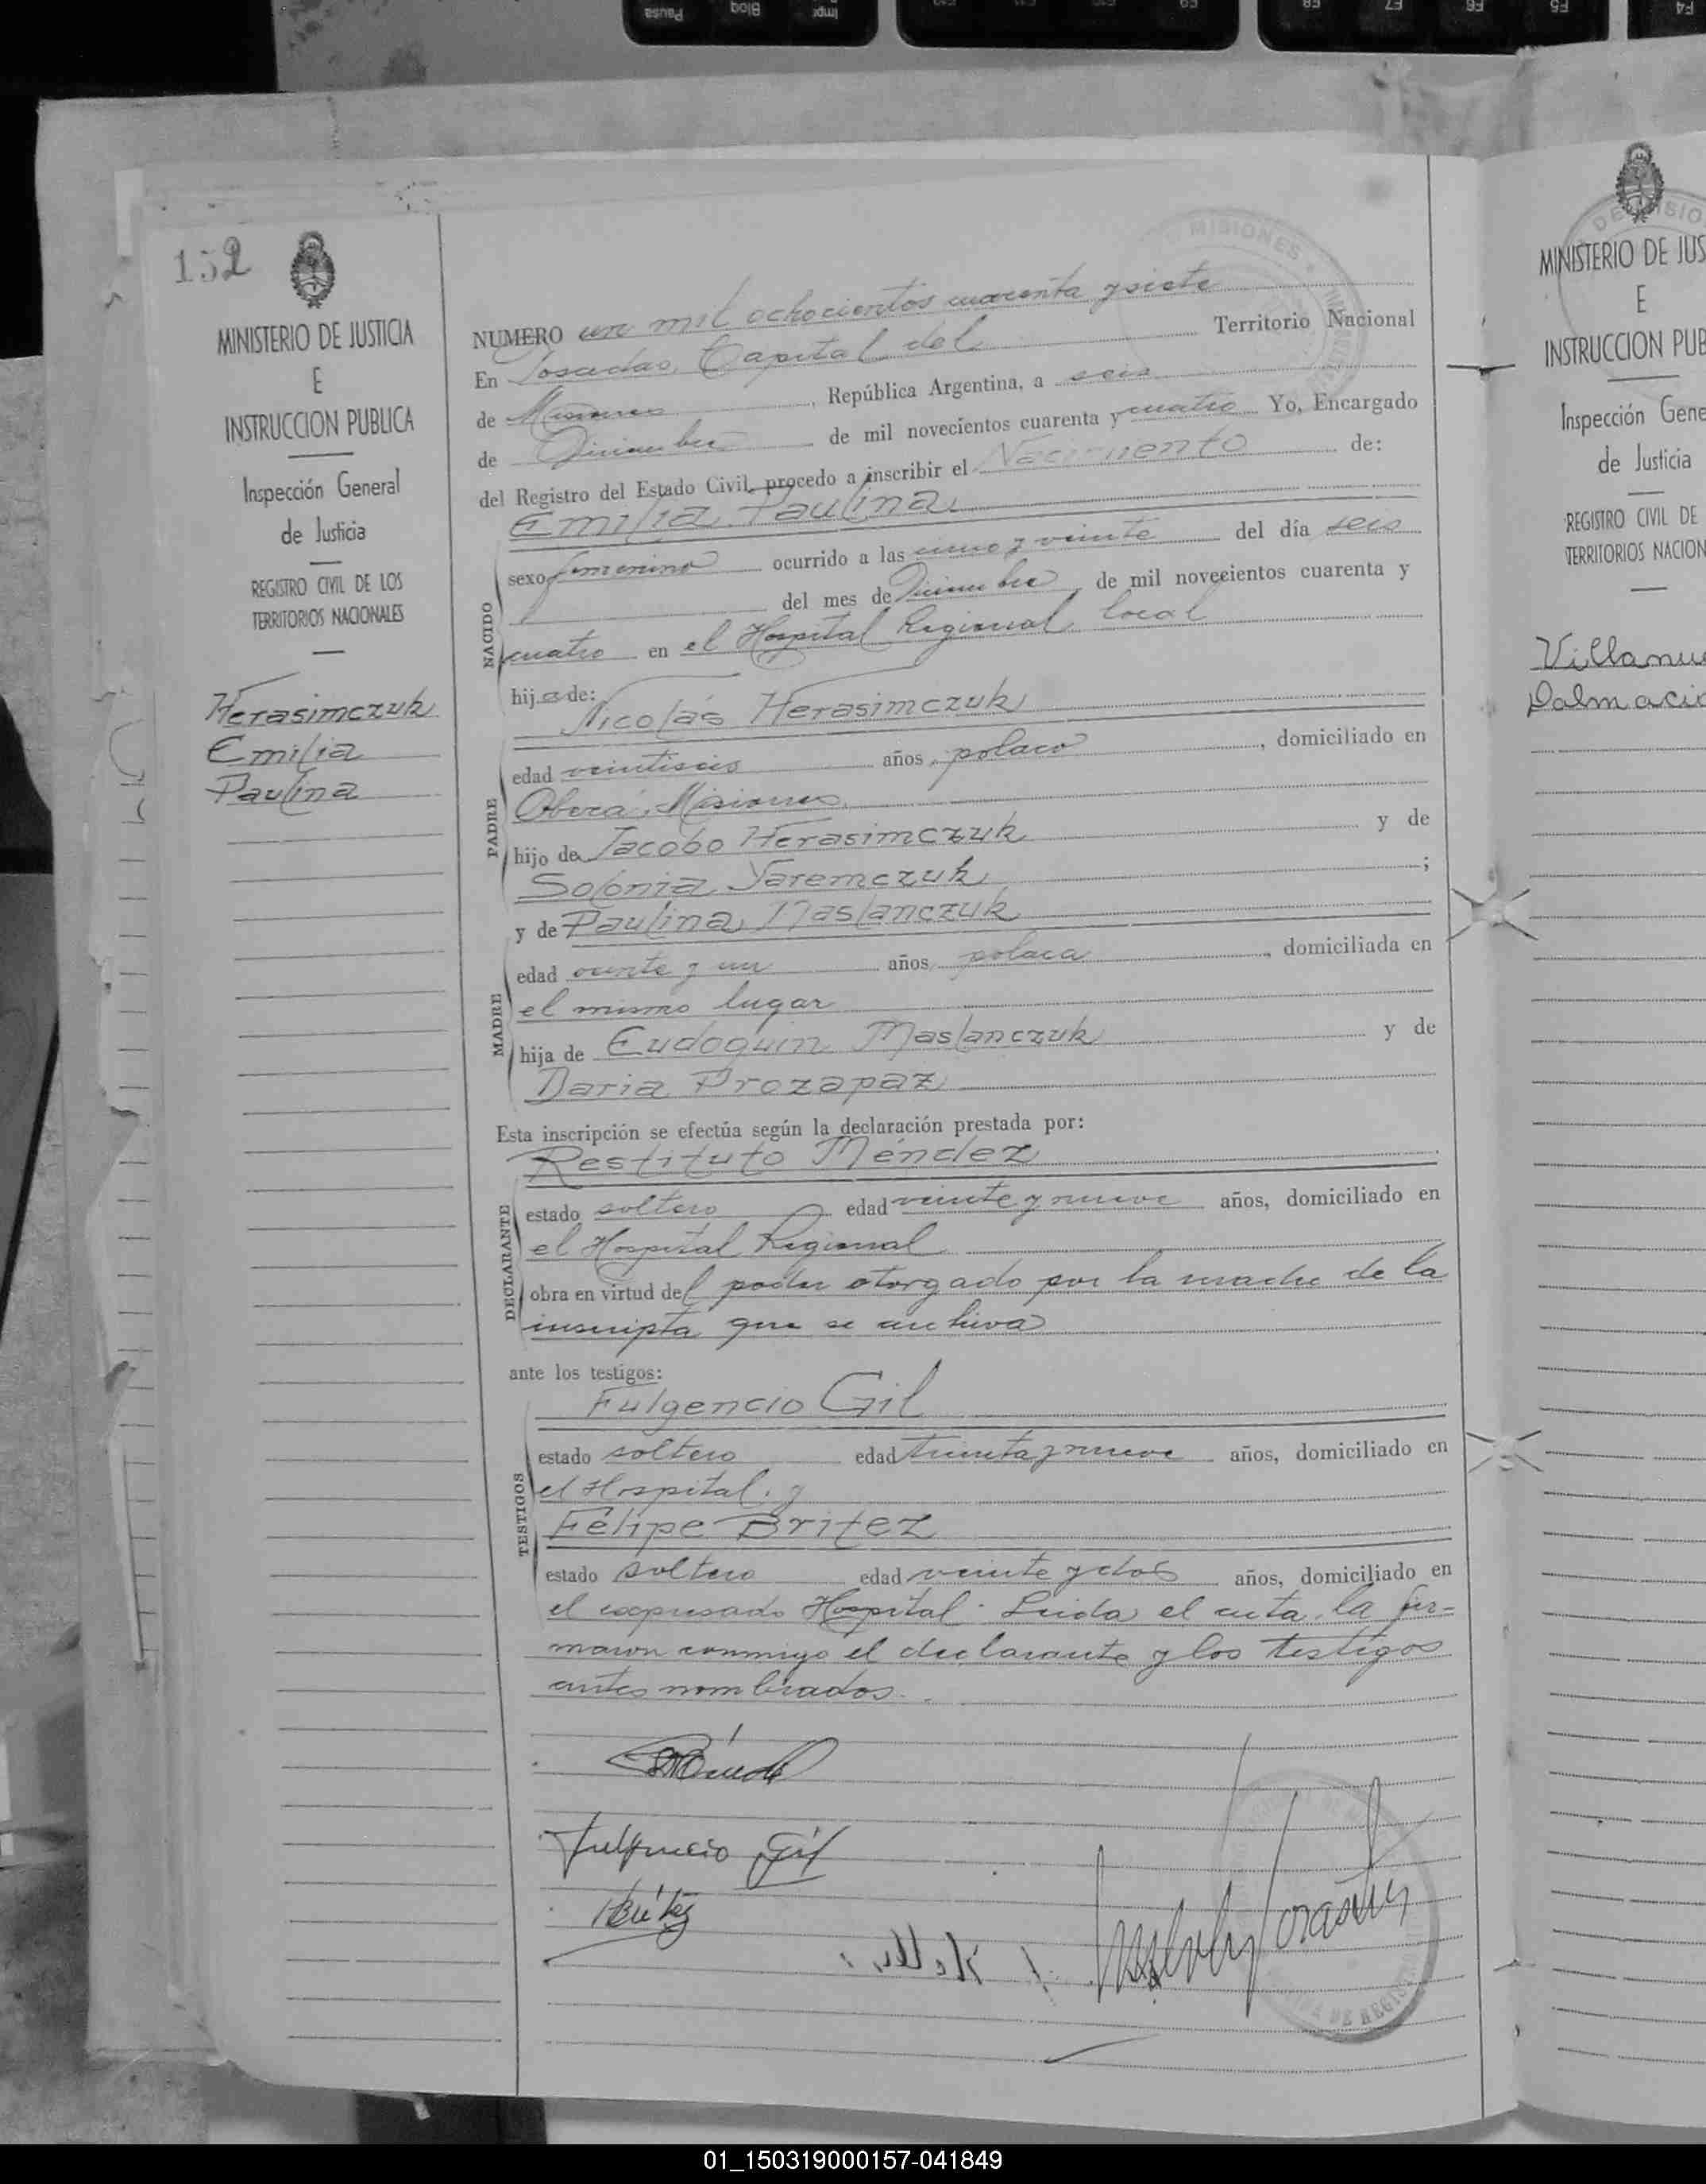 152
MINISTERIO DE JUSTICIA
E
INSTRUCCION PUBLICA
Inspección General
de Justicia
REGISTRO CIVIL DE LOS
TERRITORIOS NACIONALES
Herasimczuk
Emilia
Paulina
MISIONES
NUMERO un mil ochocientos cuarenta y siete
En Posadas, Capital del Territorio Nacional
de Misiones, República Argentina, a seis
de Diciembre de mil novecientos cuarenta y cuatro Yo, Encargado
del Registro del Estado Civil, procedo a inscribir el Nacimiento de:
Emilia Paulina
NACIDO
sexo femenino ocurrido a las cinco y veinte del día seis
del mes de Diciembre de mil novecientos cuarenta y
cuatro en el Hospital Regional local
hija de:
Nicolás Herasimczuk
PADRE
edad veintiseis años, polaco, domiciliado en
Oberá, Misiones
hijo de Jacobo Herasimczuk y de
Solonia Yaremczuk;
y de Paulina Maslanczuk
MADRE
edad veinte y un años, polaca, domiciliada en
el mismo lugar
hija de Eudoquin Maslanczuk y de
Daria Prozapaz
Esta inscripción se efectúa según la declaración prestada por:
Restituto Méndez
DECLARANTE
estado soltero edad veinte y nueve años, domiciliado en
el Hospital Regional
obra en virtud del poder otorgado por la madre de la
inscripta que se archiva
ante los testigos:
Fulgencio Gil
TESTIGOS
estado soltero edad treinta y nueve años, domiciliado en
el Hospital y
Felipe Britez
estado soltero edad veinte y dos años, domiciliado en
el expresado Hospital. Leida el acta, la fir-
maron conmigo el declarante y los testigos
antes nombrados.
Fulgencio Gil
Britez
MINISTERIO DE JUS
E
INSTRUCCION PUB
Inspección Gene
de Justicia
REGISTRO CIVIL DE
TERRITORIOS NACION
Villanue
Dalmacio
01_150319000157-041849